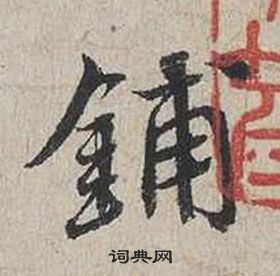 鋪
词典网